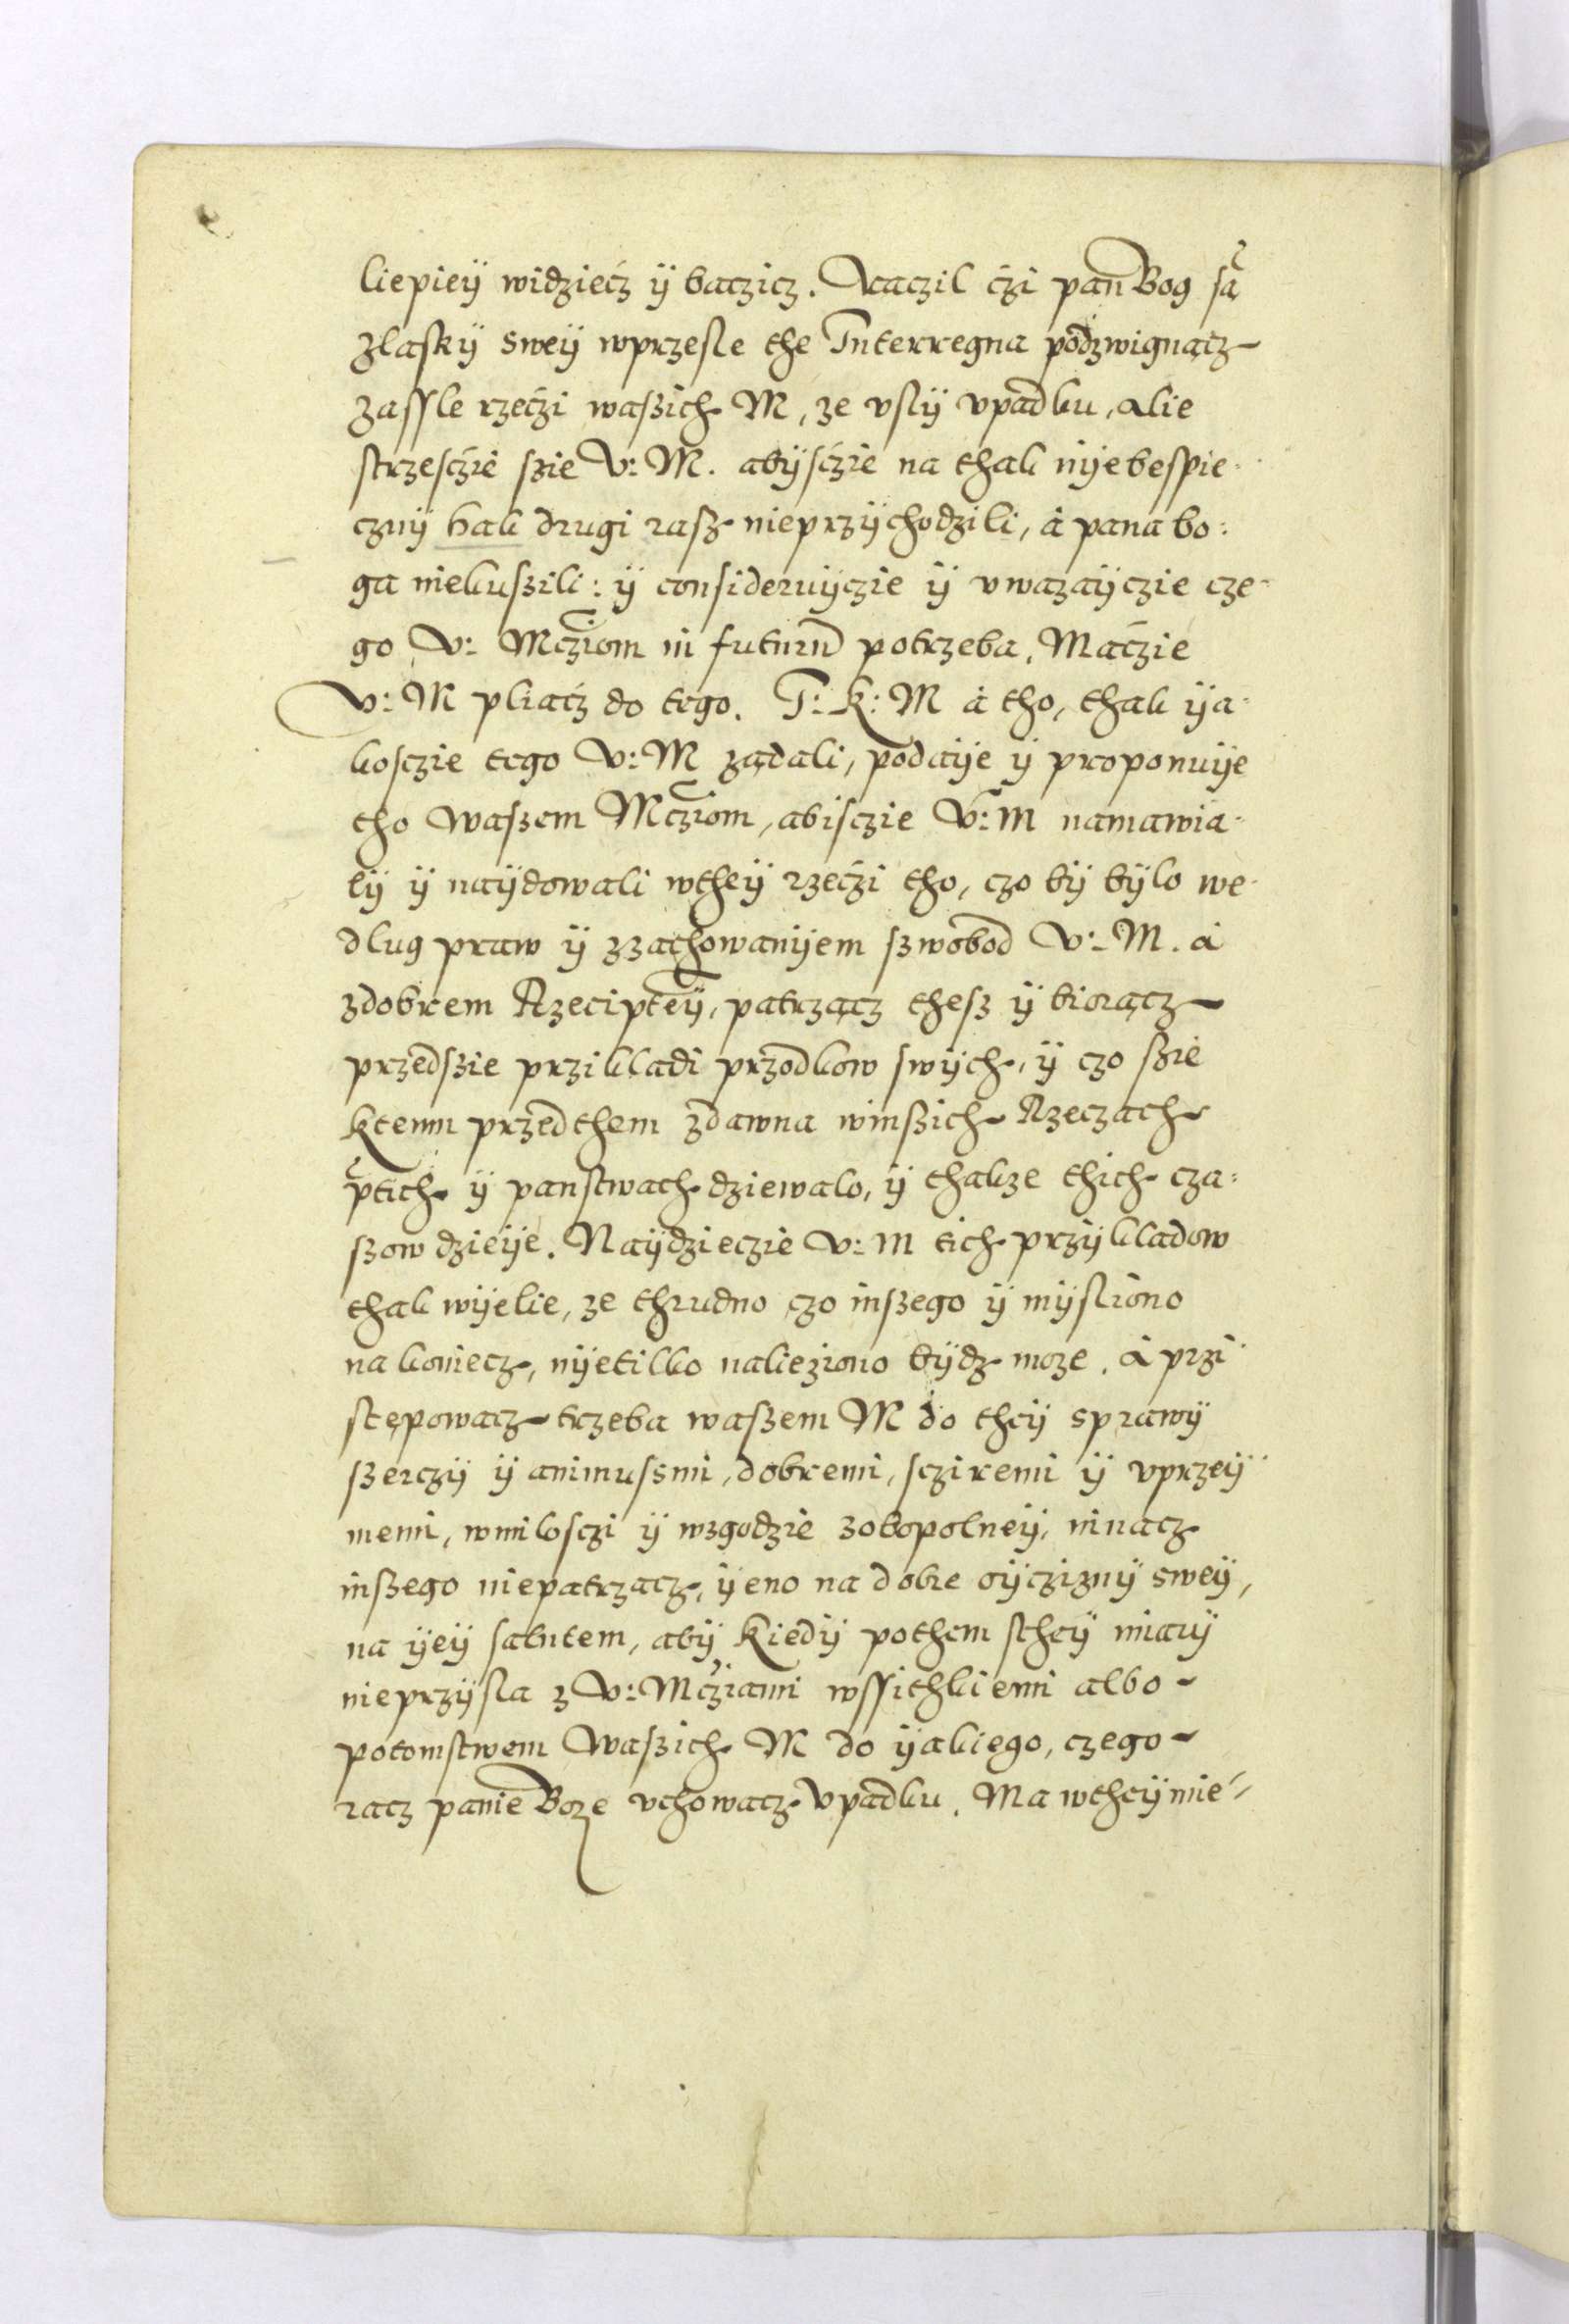 liepieÿ widziećz ÿ baczicz. Raczil ćzi pan Bog sa
zlaskÿ sweÿ wprzesle the Interregna podzwignącz
zassle rzećzi waszich M, ze vslÿ vpadku, alie
strzesćzie szie V: M. abÿsćzie na thak nÿebespie-
cznÿ hak drugi rasz nieprzÿchodzili, á pana bo:
ga niekuszili: ÿ consideruÿczie ÿ vwazaÿczie cze-
go V: Mcziom in futurū potrzeba. Maćzie
V: M pliacz do tego. J: K: M á tho, thak ÿa-
kosczie tego V: M ządali, podaÿe ÿ proponuÿe
tho waszem Mcziom, abisczie V: M namawia-
lÿ ÿ naÿdowali wtheÿ rzećzi tho, czo bÿ bÿlo we-
dlug praw ÿ zzachowanÿem szwobod V: M. á
zdobrem Rzecipteÿ, patrzącz thesz ÿ biorącz
przedszie przikładi przodkow swÿch, ÿ czo szie
ktemu przedthem zdawna winszich Rzeczach
ptich ÿ panstwach dziewalo, ÿ thakze thich cza:
szow dzieÿe. Naÿdzieczie V: M tich przÿkladow
thak wÿelie, ze thrudno czo inszego ÿ mÿsliono
nakoniecz, nÿetilko nalieziono bÿdz moze. á przi-
stępowacz trzeba waszem M do theÿ sprawÿ
szerczÿ ÿ animusmi, dobremi, scziremi ÿ vprzeÿ-
memi, wmilosczi ÿ wzgodzie zobopolneÿ, ninacz
inszego niepatrzacz, ÿeno na dobre oÿcziznÿ sweÿ,
na ÿeÿ salutem, abÿ kiedÿ pothem stheÿ miarÿ
nieprzÿsla z V: Mcziami wssithkiemi albo
potomstwem waszich M do ÿakiego, czego
racz panie Boze vchowacz vpadku. Ma wtheÿ mie-